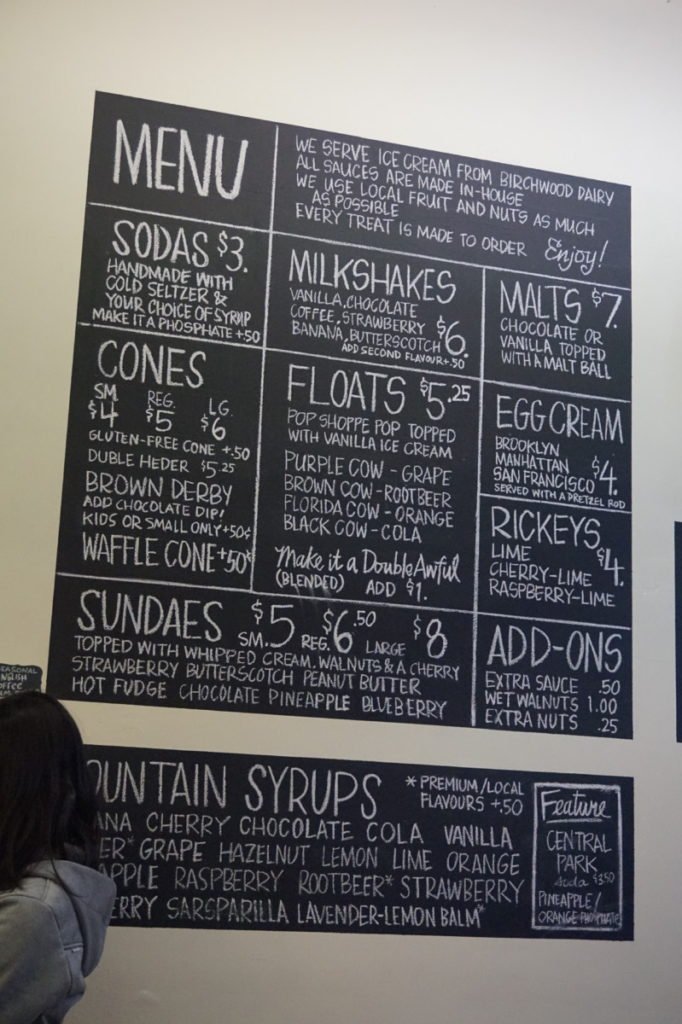 MENU
WE SERVE ICE CREAM FROM BIRCHWOOD DAIRY
ALL SAUCES ARE MADE IN-HOUSE
WE USE LOCAL FRUIT AND NUTS AS MUCH
AS POSSIBLE
EVERY TREAT IS MADE TO ORDER Enjoy!
SODAS $3.
HANDMADE WITH
COLD SELTZER &
YOUR CHOICE OF SYRUP
MAKE IT A PHOSPHATE +50
MILKSHAKES
VANILLA, CHOCOLATE
COFFEE, STRAWBERRY
BANANA, BUTTERSCOTCH $6.
ADD SECOND FLAVOUR +.50
MALTS $7.
CHOCOLATE OR
VANILLA TOPPED
WITH A MALT BALL
CONES
SM. REG. LG.
$4 $5 $6
GLUTEN-FREE CONE +.50
DUBLE HEDER $5.25
BROWN DERBY
ADD CHOCOLATE DIP!
KIDS OR SMALL ONLY +50¢
WAFFLE CONE +50¢
FLOATS $5.25
POP SHOPPE POP TOPPED
WITH VANILLA ICE CREAM
PURPLE COW - GRAPE
BROWN COW - ROOTBEER
FLORIDA COW - ORANGE
BLACK COW - COLA
Make it a Double Awful
(BLENDED) ADD $1.
EGG CREAM
BROOKLYN
MANHATTAN
SAN FRANCISCO $4.
SERVED WITH A PRETZEL ROD
RICKEYS
LIME
CHERRY-LIME $4.
RASPBERRY-LIME
SUNDAES SM. $5 REG. $6.50 LARGE $8
TOPPED WITH WHIPPED CREAM, WALNUTS & A CHERRY
STRAWBERRY BUTTERSCOTCH PEANUT BUTTER
HOT FUDGE CHOCOLATE PINEAPPLE BLUEBERRY
ADD-ONS
EXTRA SAUCE .50
WET WALNUTS 1.00
EXTRA NUTS .25
SEASONAL
OUNTAIN SYRUPS
*PREMIUM/LOCAL
FLAVOURS +.50
ANA CHERRY CHOCOLATE COLA VANILLA
ER* GRAPE HAZELNUT LEMON LIME ORANGE
APPLE RASPBERRY ROOTBEER* STRAWBERRY
ERRY SARSPARILLA LAVENDER-LEMON BALM*
Feature
CENTRAL
PARK
soda $3.50
PINEAPPLE/
ORANGE PHOSPHATE